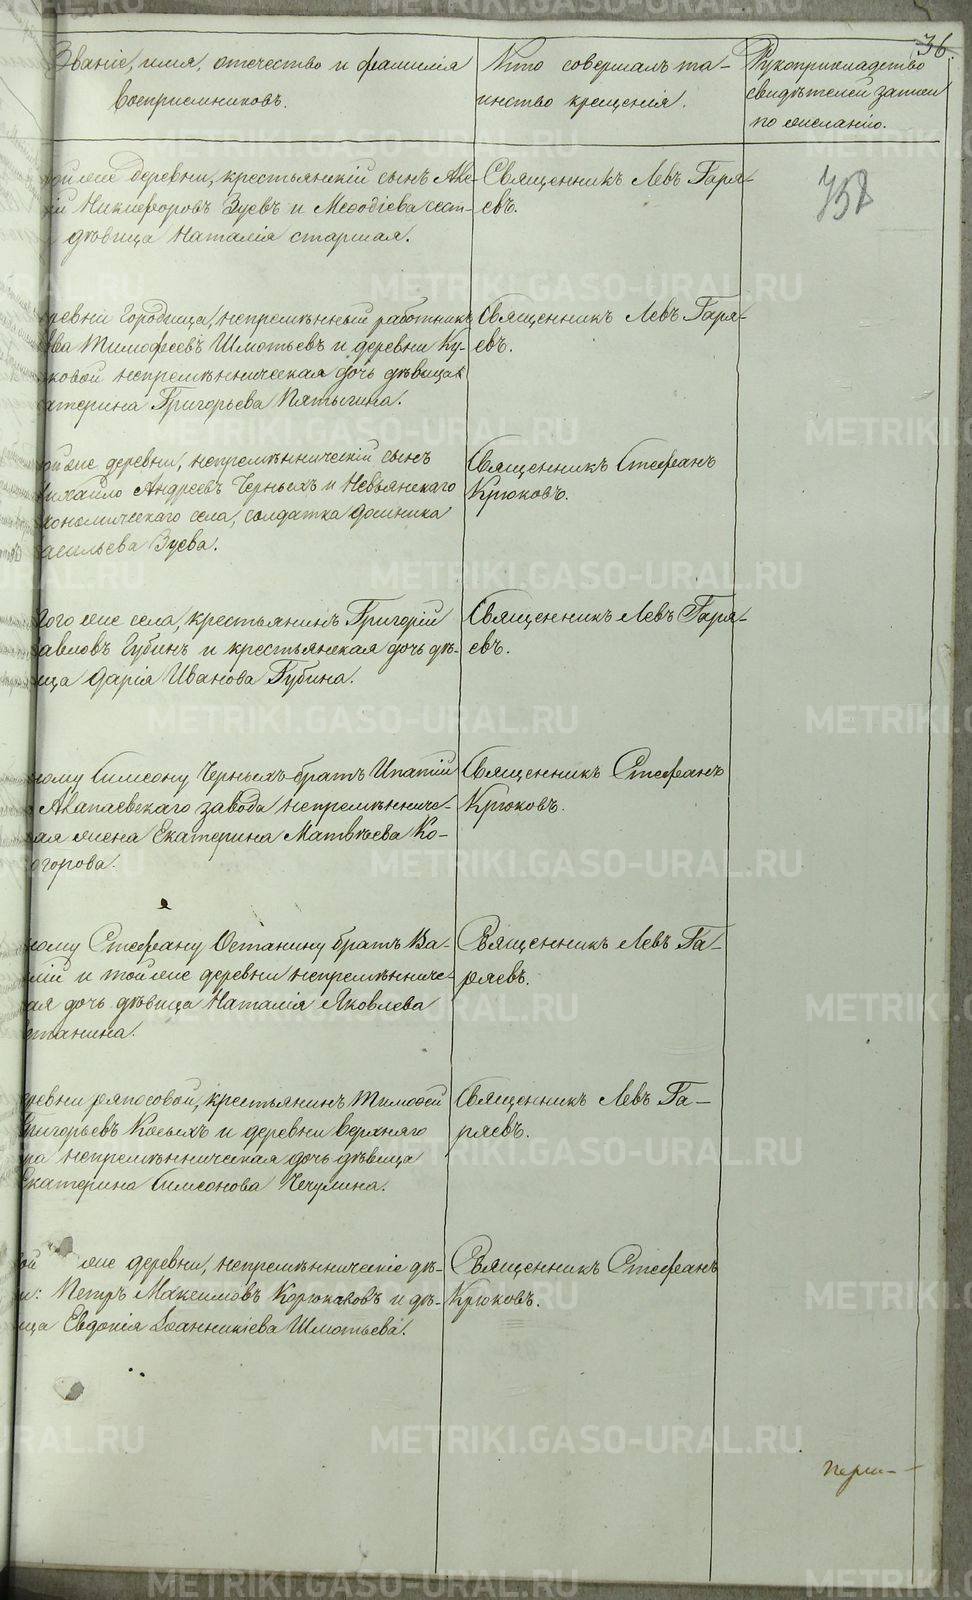 36.
Званіе, имя, отечество и фамилія
воспріемниковъ.
Кто совершалъ та-
инство крещенія.
Рукоприкладство
свидѣтелей записи
по желанію.
той же деревни, крестьянскій сынъ Але-
ій Никифоровъ Зуевъ и Меѳодіева сест-
дѣвица Наталія старшая.
Священникъ Левъ Гаря-
евъ.
758
ревни Городища, непремѣнный работникъ
ва Тимофеевъ Шмотьевъ и деревни Ку-
ковой непремѣнническая дочь дѣвица
атерина Григорьева Пятыгина.
Священникъ Левъ Гаря-
евъ.
ой же деревни, непремѣнническій сынъ
ихайло Андреевъ Черныхъ и Невьянскаго
кономическаго села, солдатка Домника
асильева Зуева.
Священникъ Стефанъ
Крюковъ.
того же села, крестьянинъ Григорій
авловъ Губинъ и крестьянская дочь дѣ-
ица Дарія Иванова Губина.
Священникъ Левъ Гаря-
евъ.
ному Симеону Черныхъ братъ Ипатій
Алапаевскаго завода непремѣнниче-
кая жена Екатерина Матвѣева Ко-
огорова.
Священникъ Стефанъ
Крюковъ.
ному Стефану Останину братъ Ва-
лій и той же деревни непремѣнниче-
кая дочь дѣвица Наталія Яковлева
станина.
Священникъ Левъ Га-
ряевъ.
ревни Ряпосовой, крестьянинъ Тимоѳей
ригорьевъ Косыхъ и деревни Верхняго
ра непремѣнническая дочь дѣвица
Екатерина Симеонова Чечулина.
Священникъ Левъ Га-
ряевъ.
ой же деревни, непремѣнническіе дѣ-
и: Петръ Максимовъ Корюкаловъ и дѣ-
ица Евдокія Іоанникіева Шмотьева.
Священникъ Стефанъ
Крюковъ.
METRIKI.GASO-URAL.RU